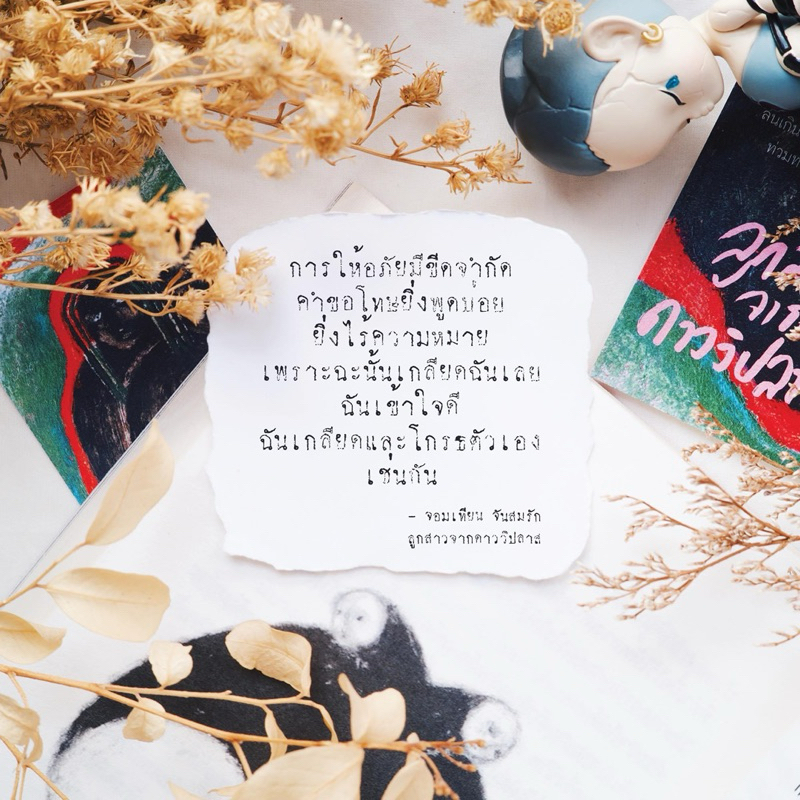 การให้อภัยมีขีดจำกัด
คำขอโทษยิ่งพูดบ่อย
ยิ่งไร้ความหมาย
เพราะฉะนั้นเกลียดฉันเลย
ฉันเข้าใจดี
ฉันเกลียดและโกรธตัวเอง
เช่นกัน
– จอมเทียน จันสมรัก
ลูกสาวจากดาววิปลาส